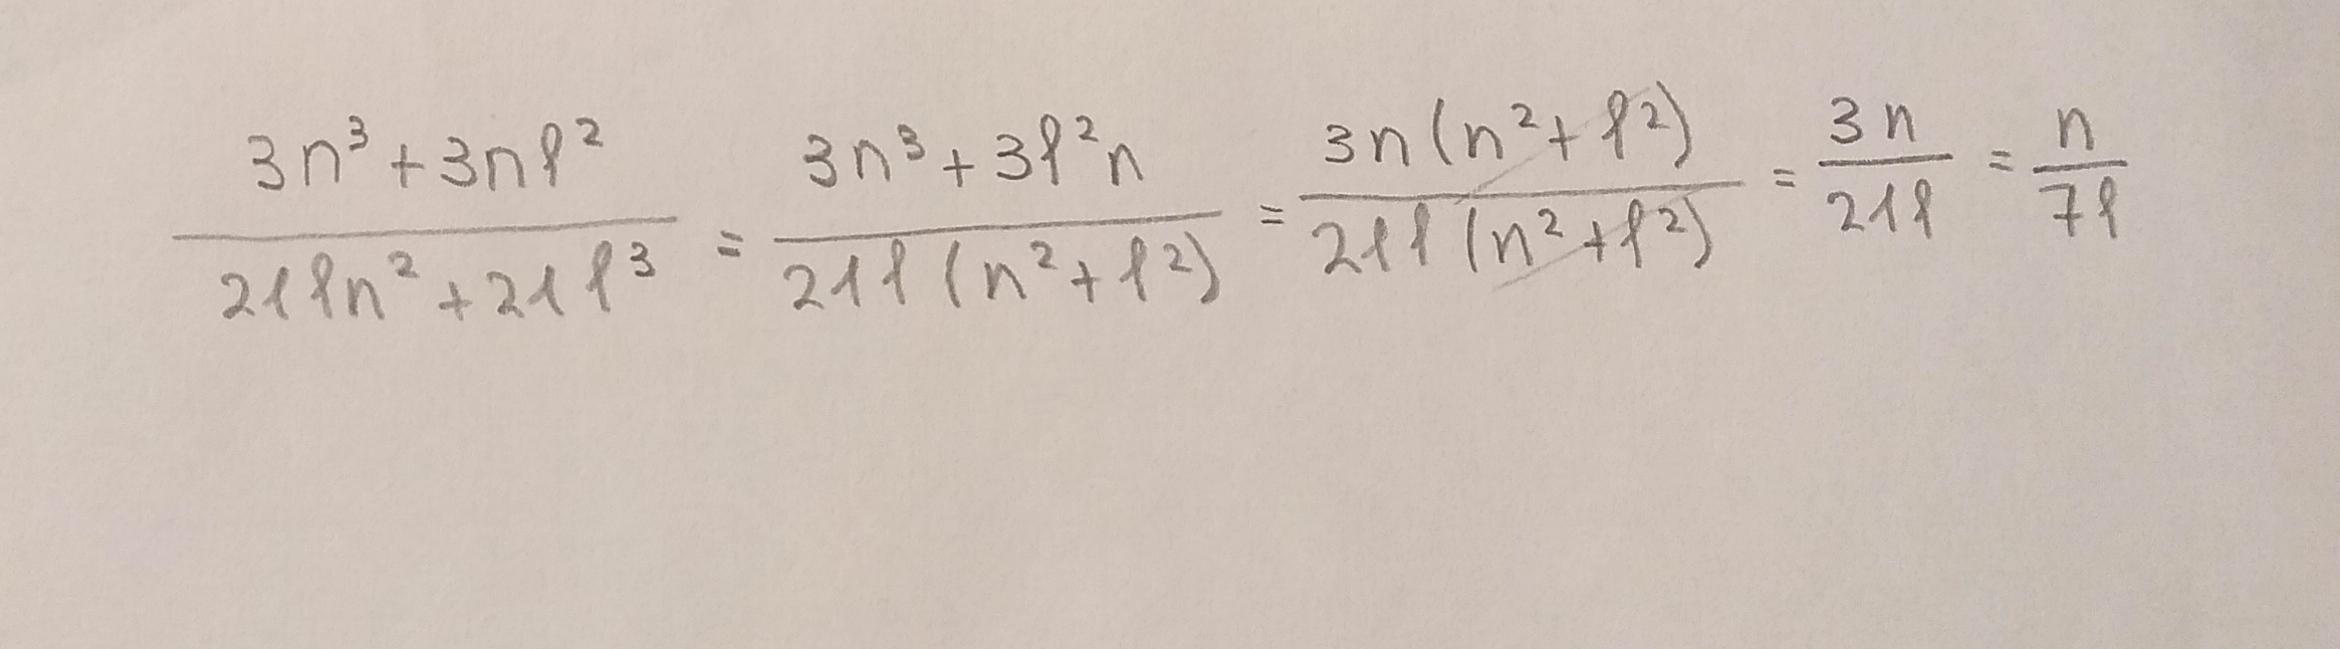 \frac{3n^3+3nl^2}{21ln^2+21l^3} = \frac{3n^3+3l^2n}{21l(n^2+l^2)} = \frac{3n(n^2+l^2)}{21l(n^2+l^2)} = \frac{3n}{21l} = \frac{n}{7l}